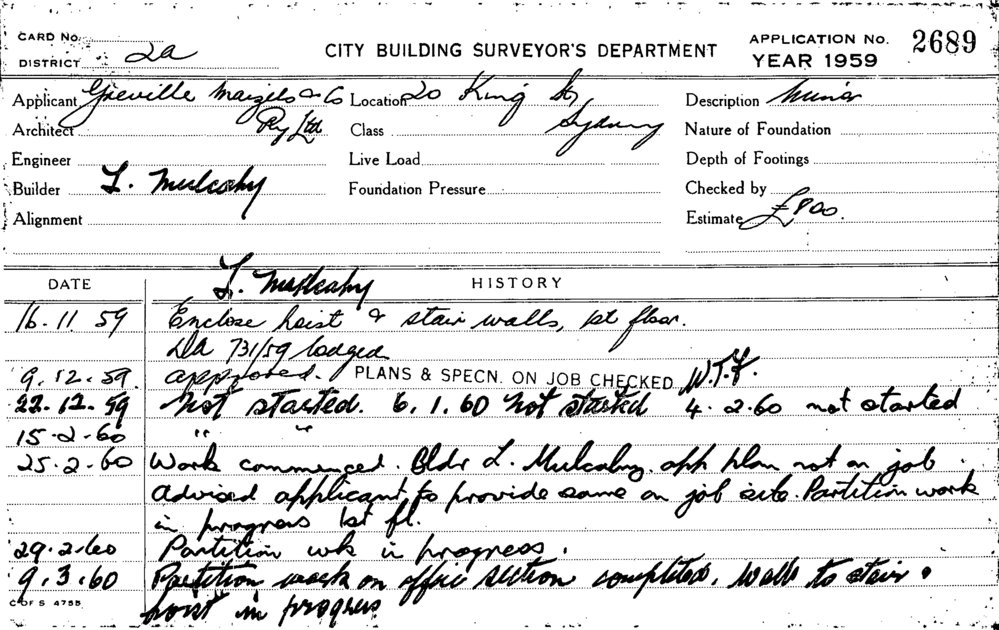 CARD No.
DISTRICT 2a
CITY BUILDING SURVEYOR'S DEPARTMENT
APPLICATION No. 2689
YEAR 1959
Applicant Greville Maizels & Co Pty Ltd
Location 20 King St, Sydney
Description Minor
Architect
Class
Nature of Foundation
Engineer
Live Load
Depth of Footings
Builder L. Mulcahy
Foundation Pressure
Checked by
Alignment
Estimate £800.
L. Mulcahy
DATE HISTORY
16.11.59 Enclose hoist & stair walls, 1st floor.
DA 731/59 lodged
9.12.59. approved. PLANS & SPECN. ON JOB CHECKED W.T.F.
22.12.59 Not started. 6.1.60 Not started 4.2.60 not started
15-2-60 " "
25.2.60 Work commenced. Bldr L. Mulcahy. app plan not on job.
Advised applicant to provide same on job site. Partition work
in progress 1st fl.
29.2.60 Partition wk in progress.
9.3.60 Partition work on office section completed. Walls to stair &
hoist in progress
C OF S 4755